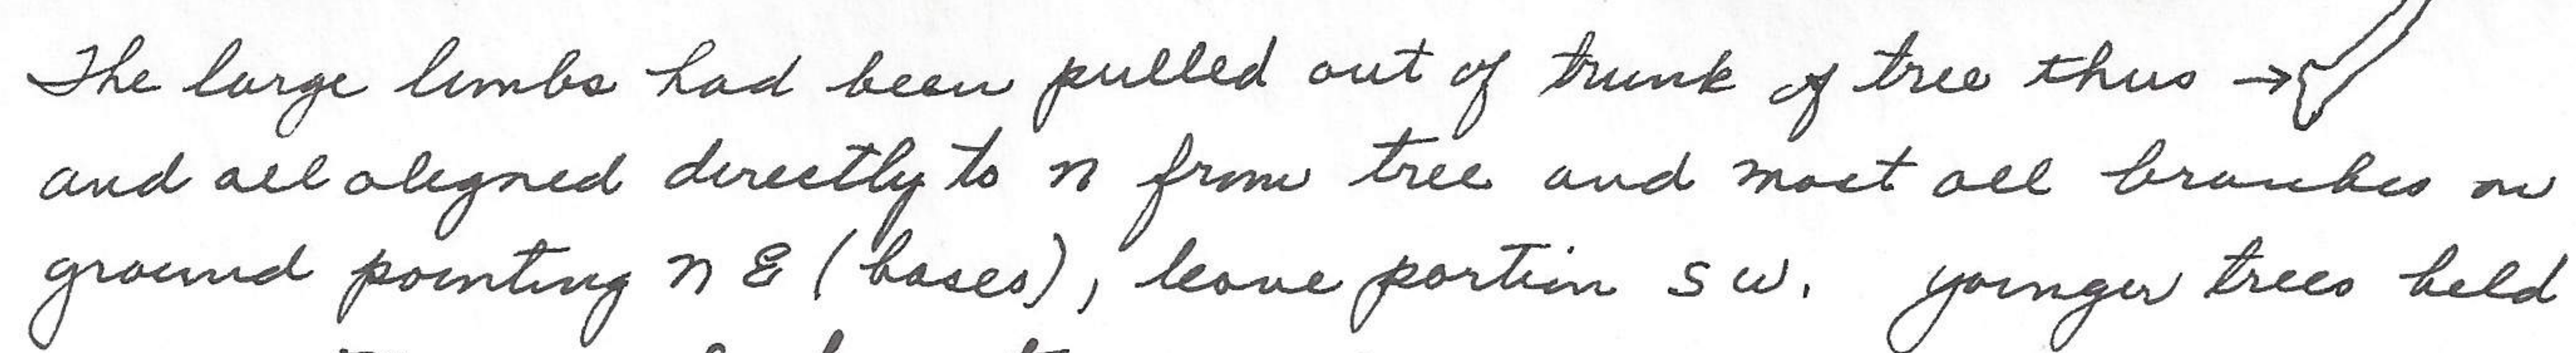 The large limbs had been pulled out of trunk of tree thus →
and all aligned directly to n from tree and most all branches on
ground pointing N E (bases), leave portion S W. younger trees held